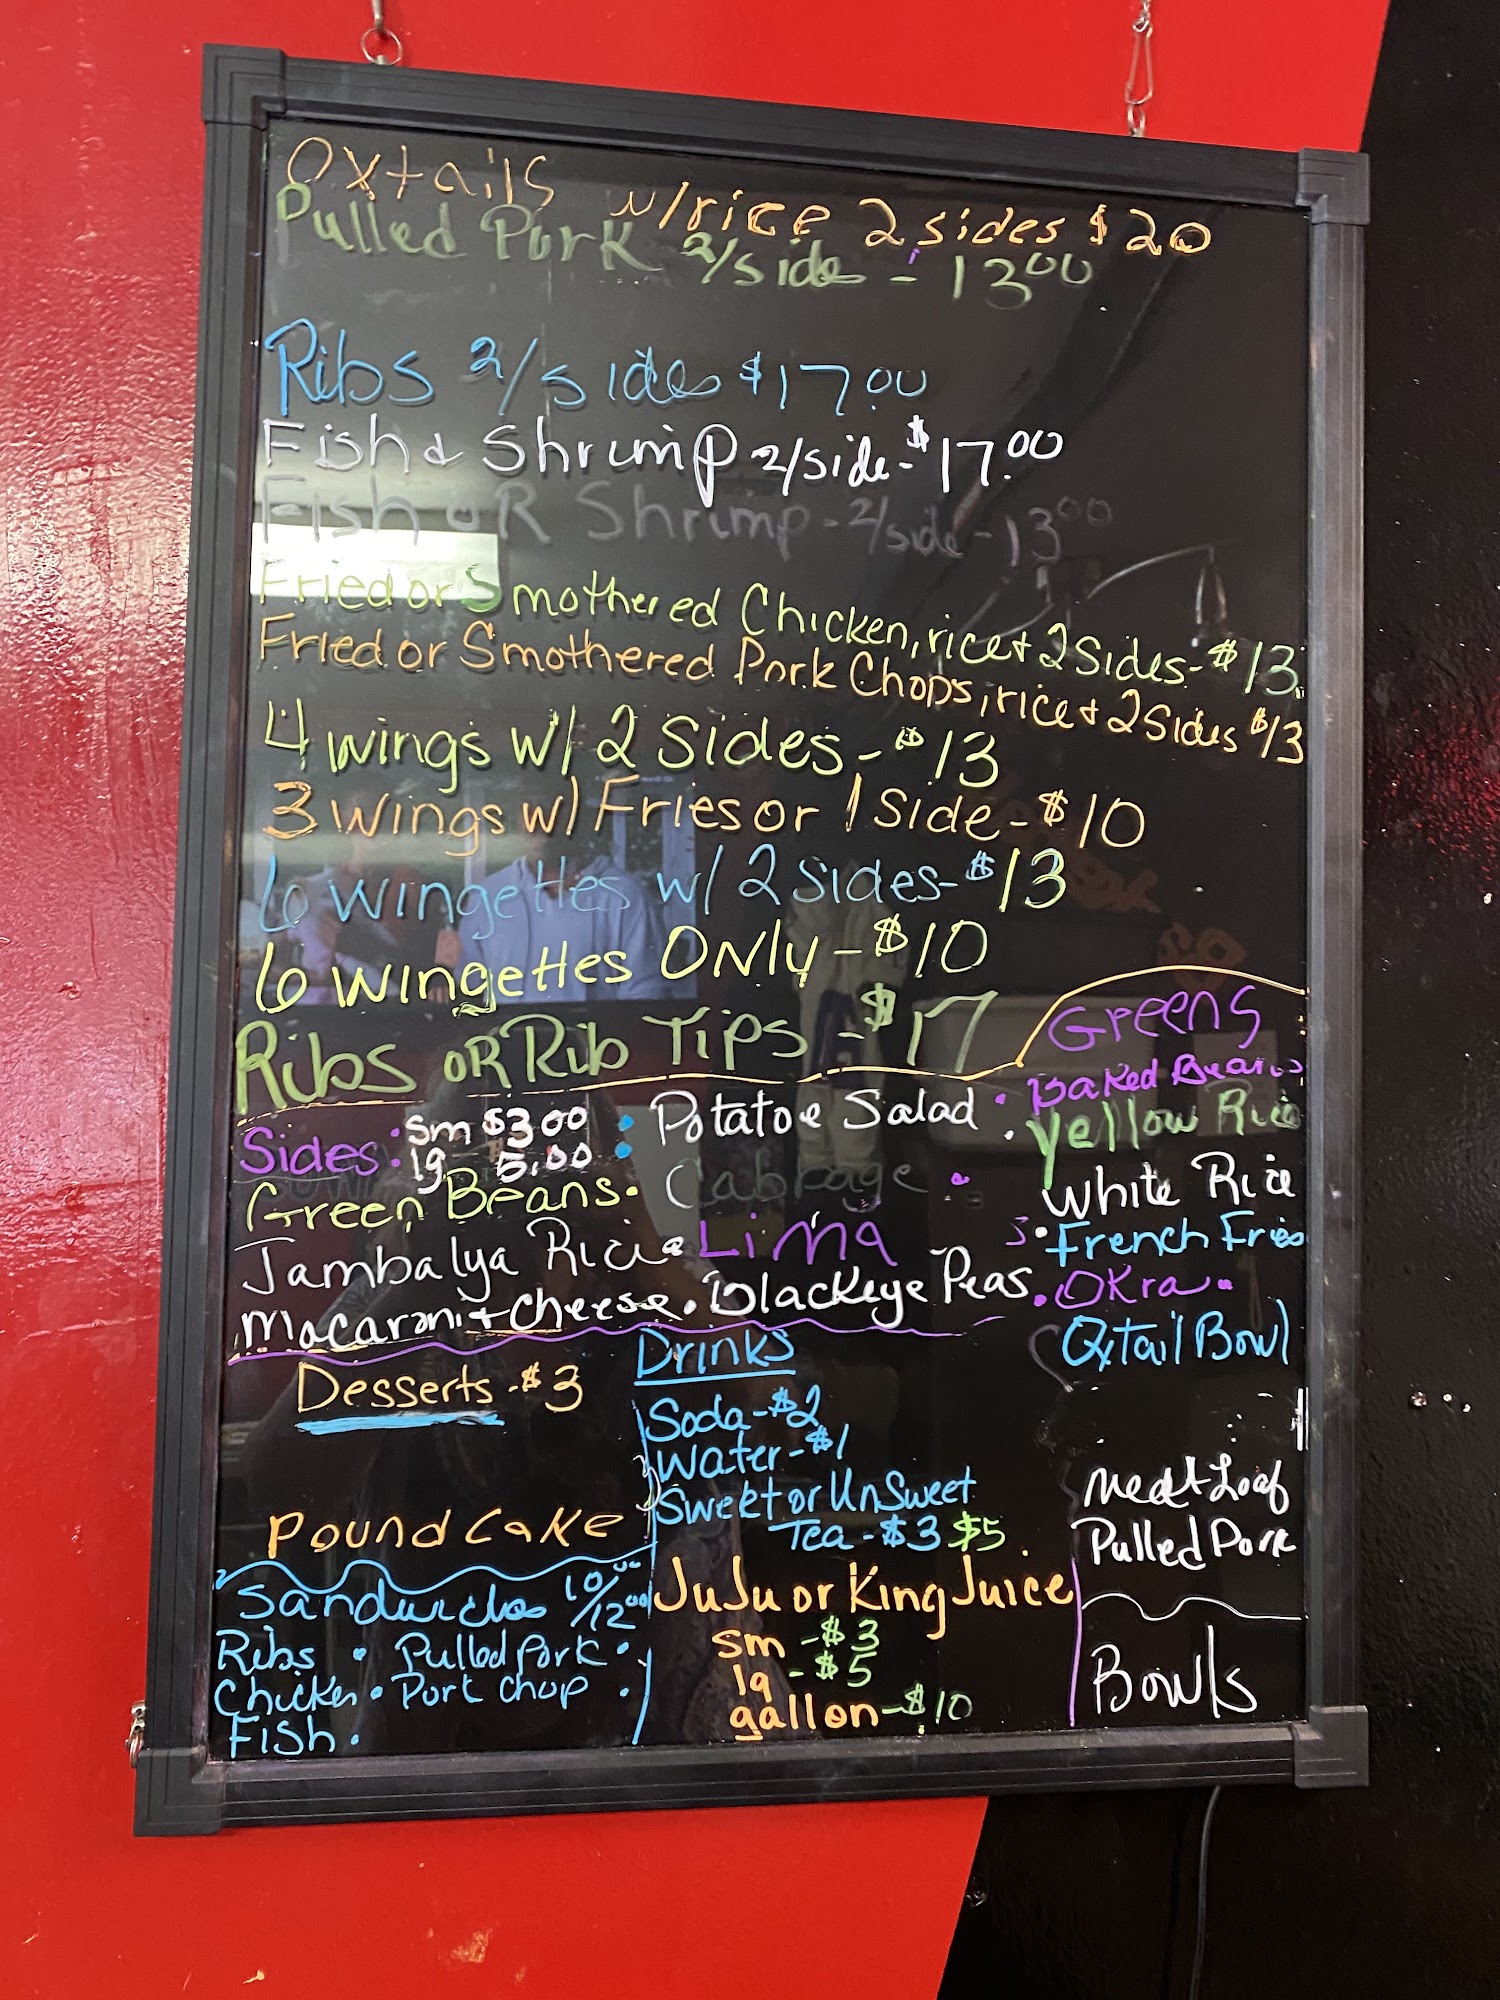 Oxtails w/rice 2 sides $20
Pulled Pork 2/side - 13.00
Ribs 2/side $17.00
Fish & Shrimp 2/side - $17.00
Fish OR Shrimp - 2/side - 13.00
Fried or Smothered Chicken, rice & 2 Sides - $13
Fried or Smothered Pork Chops, rice & 2 Sides $13
4 wings w/ 2 Sides - $13
3 wings w/ Fries or 1 Side - $10
6 wingettes w/ 2 Sides - $13
6 wingettes ONLY - $10
Ribs OR Rib Tips - $17
Sides: sm $3.00
lg 5.00
Green Beans
Jambalya Rice
Macaroni & Cheese
Potatoe Salad
Cabbage
Lima
Blackeye Peas
Greens
Baked Beans
Yellow Rice
White Rice
French Fries
OKra
Oxtail Bowl
Meat Loaf
Pulled Pork
Bowls
Desserts - $3
Pound Cake
Sandwiches 10.00/12.00
Ribs • Pulled Pork •
Chicken • Pork Chop •
Fish •
Drinks
Soda - $2
Water - $1
Sweet or UnSweet
Tea - $3 $5
JuJu or King Juice
sm - $3
lg - $5
gallon - $10